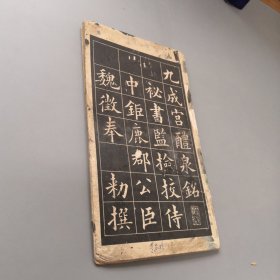 九成宮醴泉銘
秘書監撿挍侍
中鉅鹿郡公臣
魏徵奉 勅撰